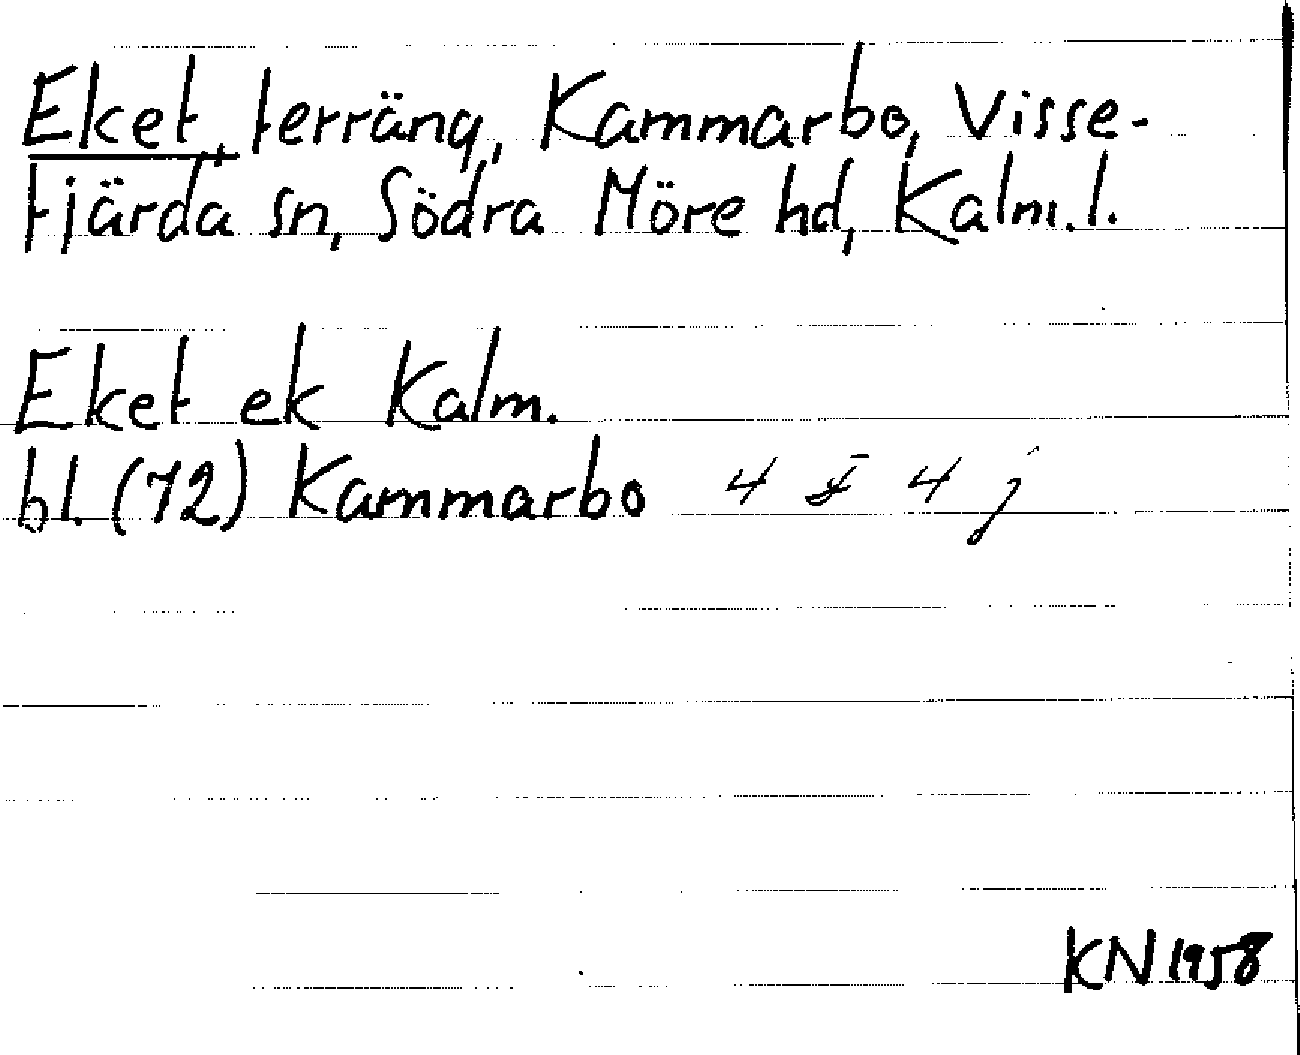 Eket, terräng, Kammarbo, Visse-
fjärda sn, Södra Möre hd, Kalm. l.
Eket ek Kalm.
bl. (72) Kammarbo 4 I 4 j
KN 1958